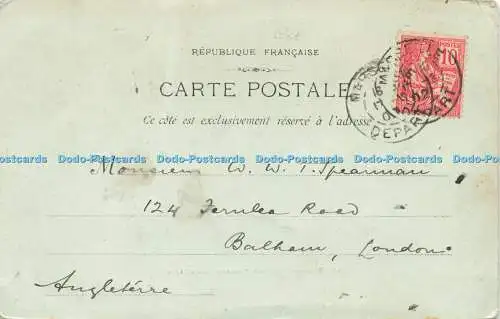 RÉPUBLIQUE FRANÇAISE
CARTE POSTALE
Ce côté est exclusivement réservé à l'adresse
POSTES
10
DEPART
Dodo-Postcards Dodo-Postcards Dodo-Postcards Dodo-Postcards Dodo-Postcards
Monsieur W. W. T. Spearman
124 Fernlea Road
Balham, London
Angletérre